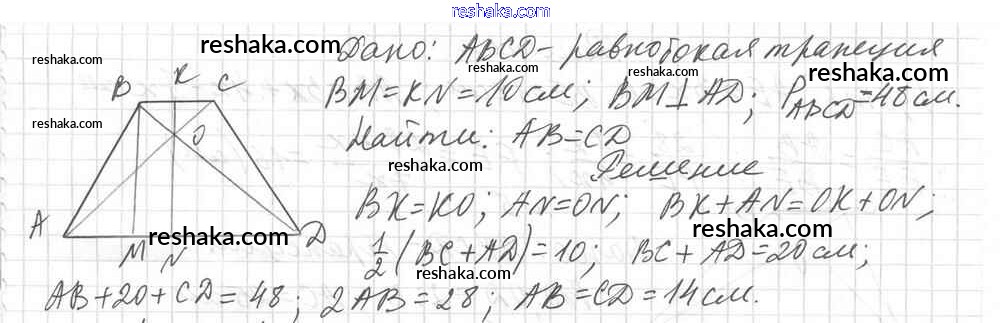 reshaka.com
reshaka.com
Дано: ABCD - равнобокая трапеция
reshaka.com
B K C
BM=KN=10 см; BM⊥AD; P_ABCD=48 см.
reshaka.com
reshaka.com
reshaka.com
O
Найти: AB=CD
reshaka.com
Решение
A M N D
BK=KO; AN=ON; BK+AN=OK+ON;
reshaka.com
reshaka.com
1/2(BC+AD)=10; BC+AD=20см;
reshaka.com
AB+20+CD=48; 2AB=28; AB=CD=14см.
reshaka.com